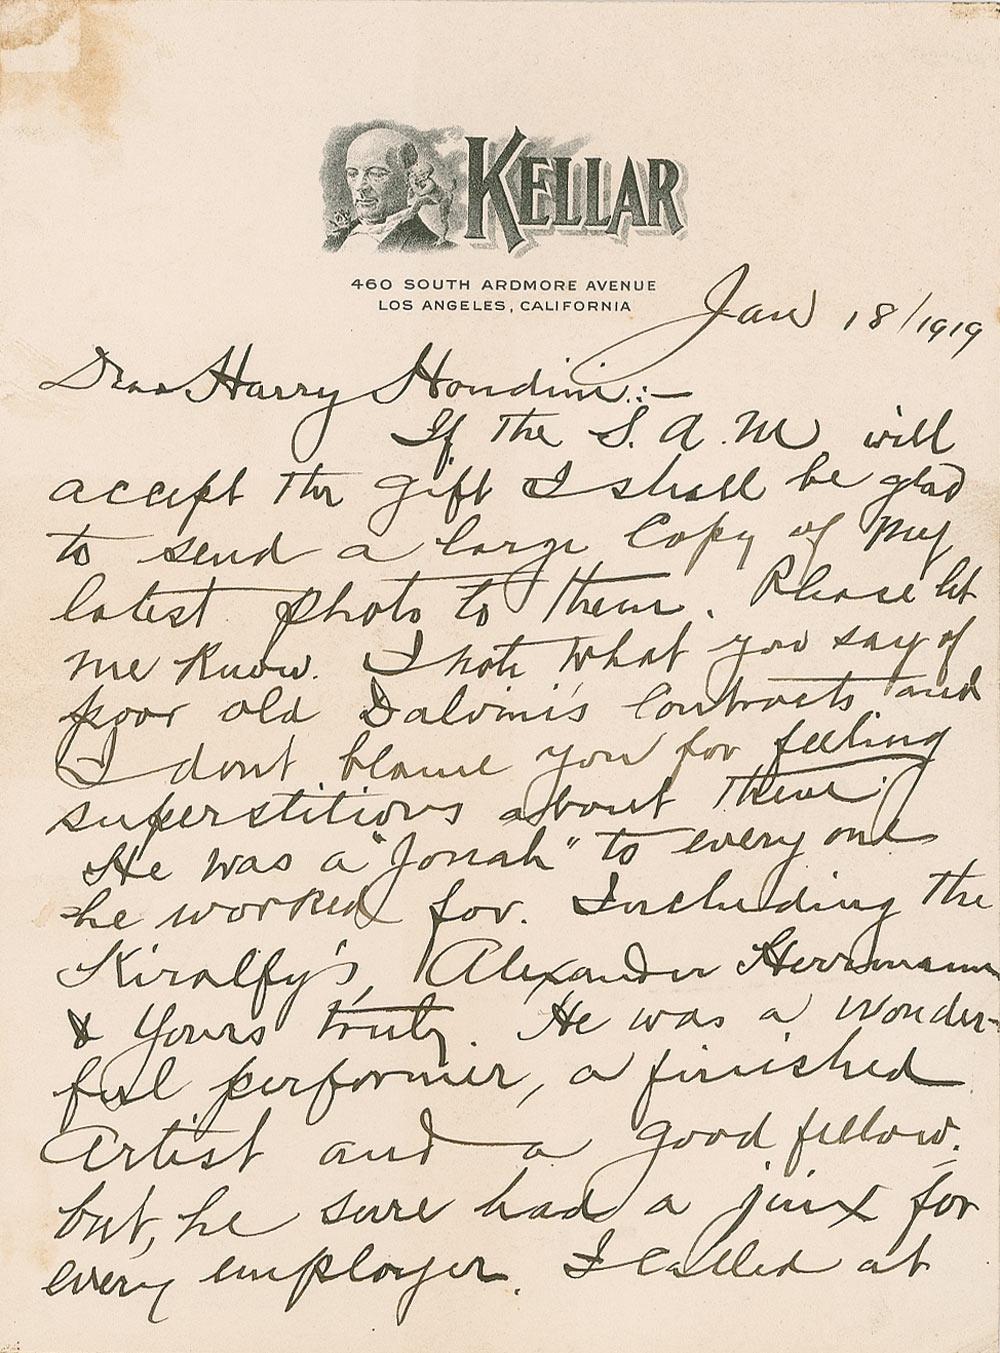 KELLAR
460 SOUTH ARDMORE AVENUE
LOS ANGELES, CALIFORNIA
Jan 18/1919
Dear Harry Houdini:—
If the S. A. M will
accept the gift I shall be glad
to send a large Copy of my
latest photo to them. Please let
me know. I note what you say of
poor old Dalvini's Contracts and
I dont blame you for feeling
superstitious about them.
He was a "Jonah" to every one
he worked for. Including the
Kiralfy's, Alexander Herrmann
& Yours truly. He was a wonder-
ful performer, a finished
Artist and a good fellow.
but, he sure had a jinx for
every employer. I called at